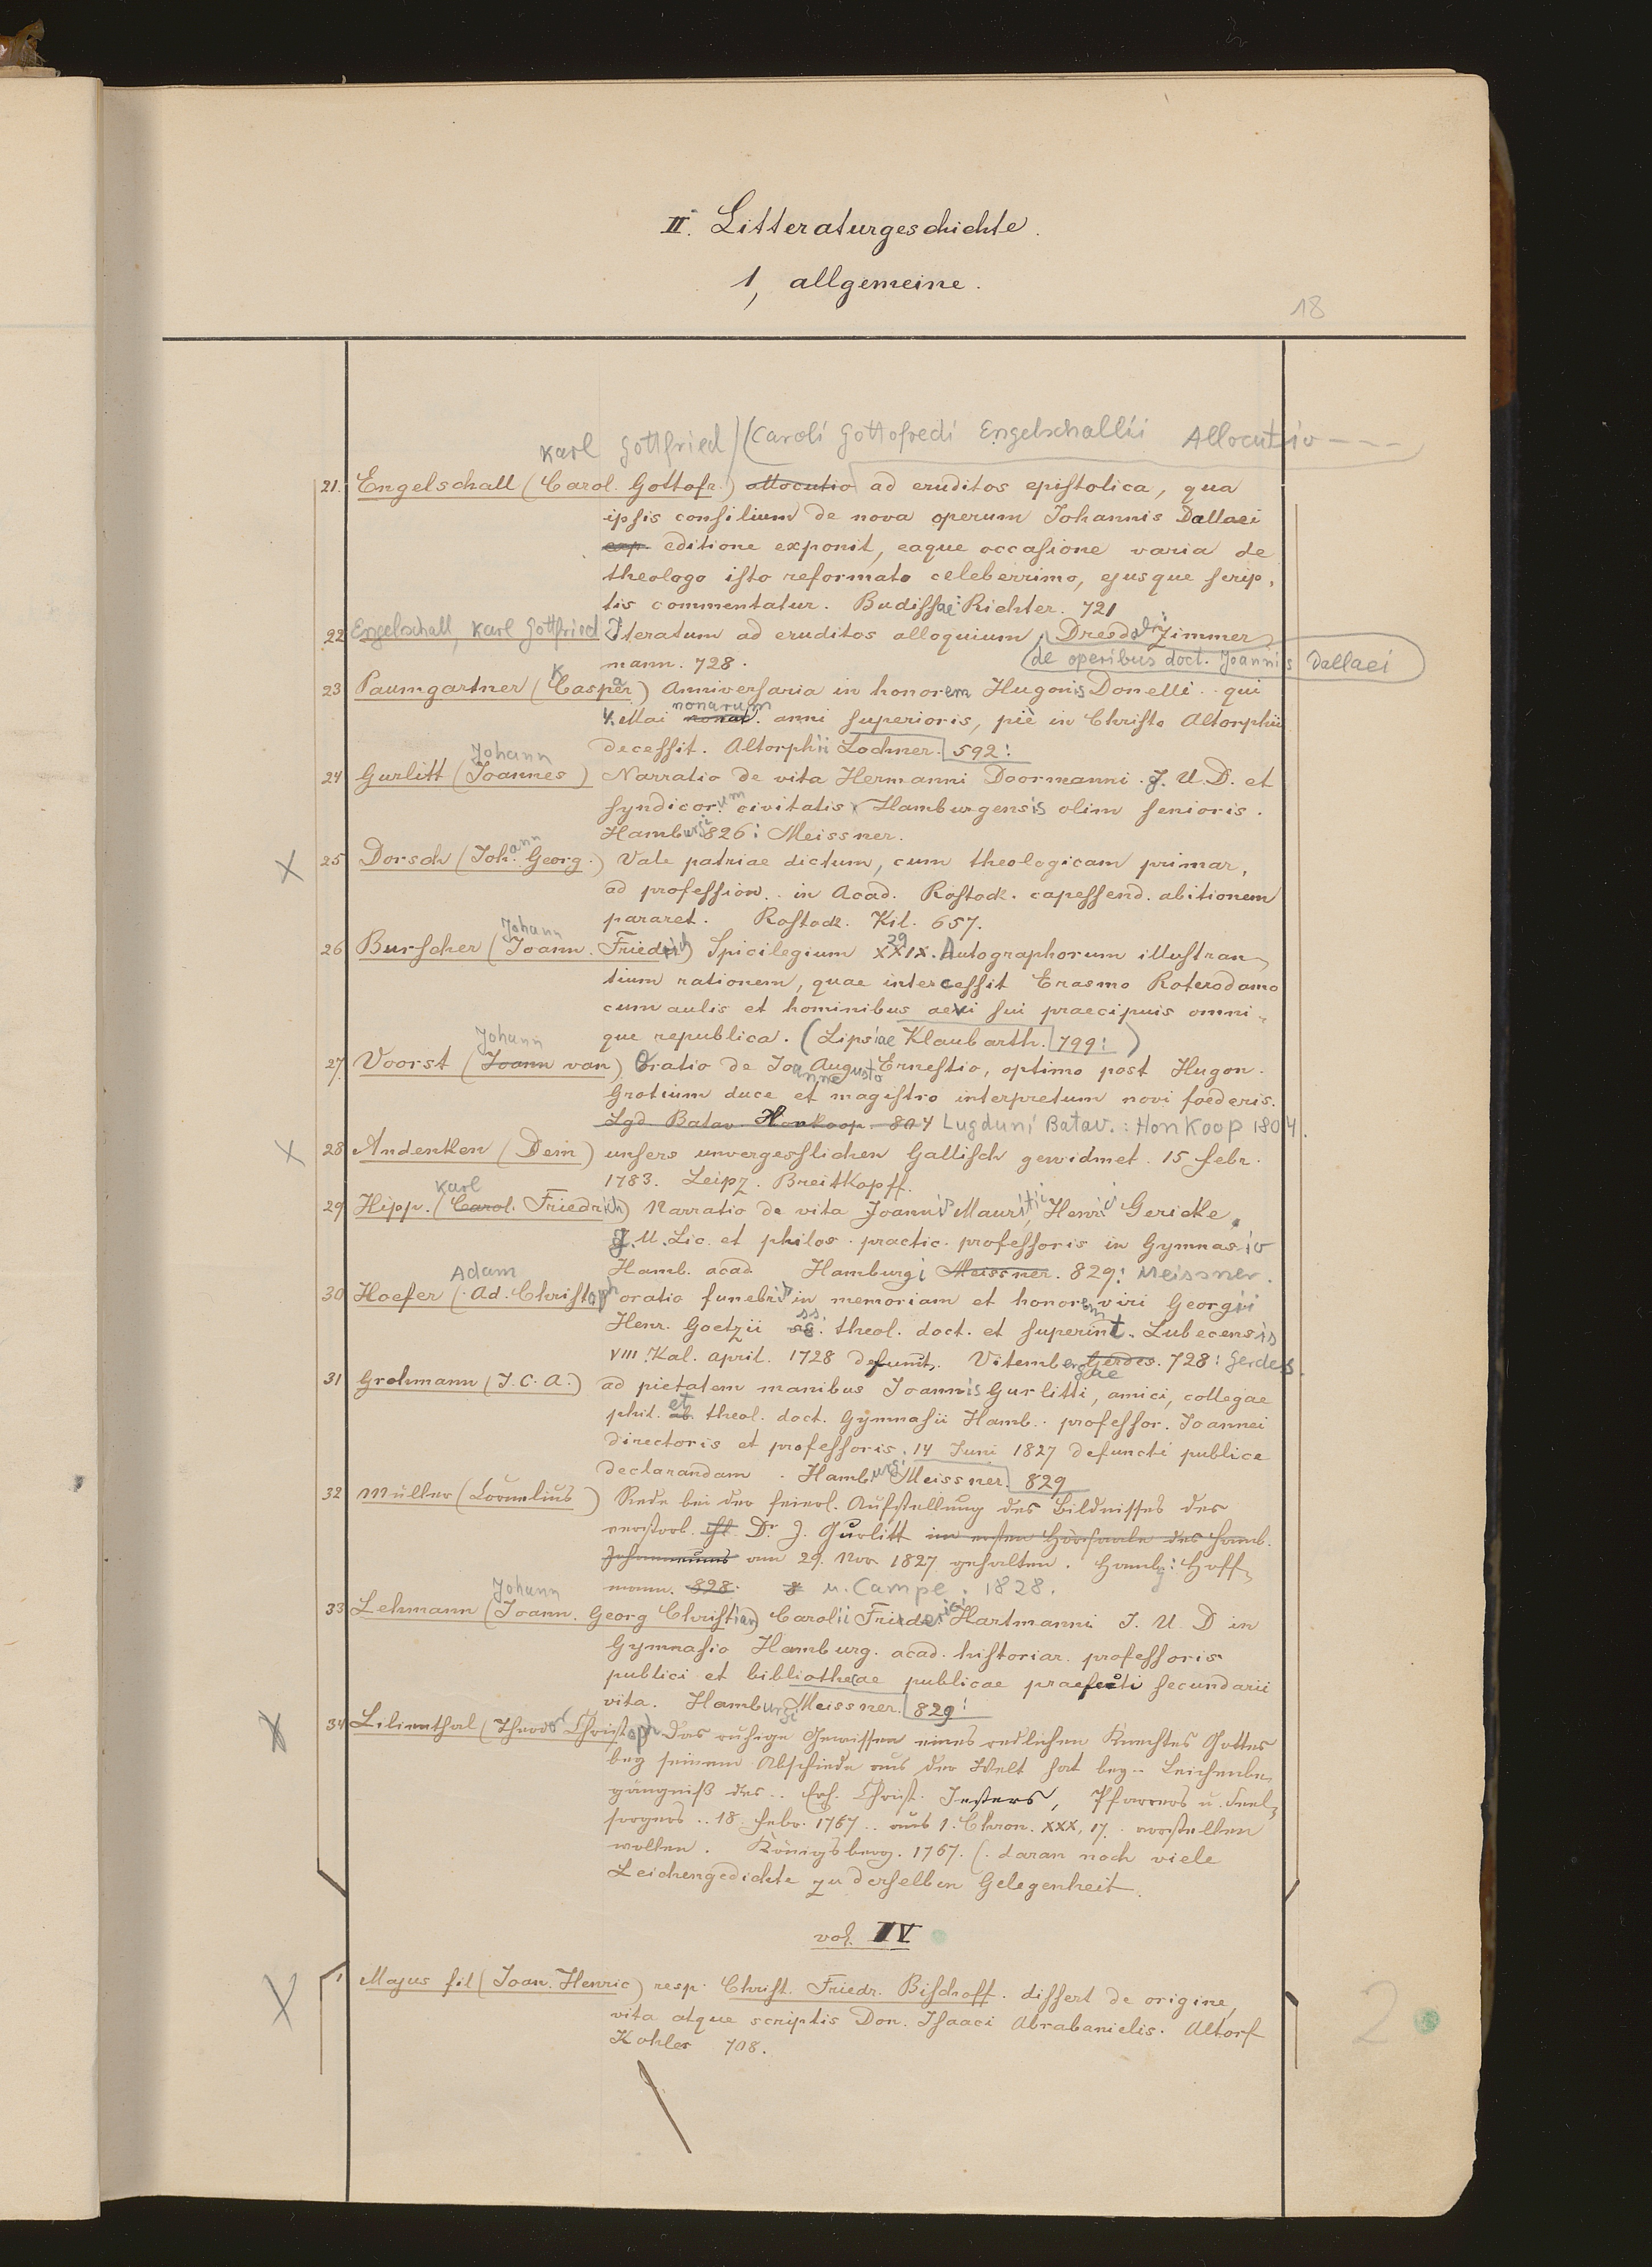 II. Litteraturgeschichte.
1, allgemeine.
18
Karl Gottfried) (Caroli Gottofredi Engelschallii Allocutio ----
21. Engelschall (Carol. Gottofr.) allocutio ad eruditos epistolica, qua
ipsis consilium de nova operum Johannis Dallaei
exp. editione exponit, eaque occasione varia de
theologo isto reformato celeberrimo, ejusque scrip,
tis commentatur. Budissae: Richter. 721
22 Engelschall, Karl Gottfried Iteratum ad eruditos alloquium, Dresdae: Zimmer
mann. 728. (de operibus doct. Joannis Dallaei
23 Paumgartner (Caspar) Anniversaria in honorem Hugonis Donelli.. qui
nonarum
4. Mai nonar. anni superioris, pie in Christo Altorphii
decessit. Altorphii Lochner. 592!
Johann
24 Gurlitt (Joannes) Narratio de vita Hermanni Doormanni. J. U. D. et
Syndicorum civitatis Hamburgensis olim senioris.
Hamburgi 826: Meissner.
25 Dorsch (Johann Georg.) Vale patriae dictum, cum theologicam primar,
ad profession.. in Acad. Rostock. capessend. abitionem
pararet. Rostock. Kil. 657.
Johann 29
26 Burscher (Joann. Friedrich) Spicilegium XXIX. Autographorum illustran
tium rationem, quae intercessit Erasmo Roterodamo
cum aulis et hominibus aevi sui praecipuis omni-
que republica. (Lipsiae Klaubarth. 799!)
Johann
27. Voorst (Joann van) Oratio de Joanne Augusto Ernestio, optimo post Hugon.
Grotium duce et magistro interpretum novi foederis.
Lgd. Batav. Honkoop. 804 Lugduni Batav.: Honkoop 1804.
28 Andenken (Dein) unsers unvergesslichen Gallisch gewidmet. 15 febr.
1783. Leipz. Breitkopff.
Karl
29 Hipp. (Carol. Friedrich) Narratio de vita Joannis Mauritii, Henrici Gericke,
J. U. Lic. et philos. practic. professoris in Gymnasio
Hamb. acad. Hamburgi Meissner. 829: Meissner.
Adam
30 Hoefer (Ad. Christoph oratio funebris in memoriam et honorem viri Georgii
Henr. Goetzii ss. theol. doct. et superint. Lubecensis
VIII. Kal. april. 1728 defunct. Vitembergae Gerdes. 728: Gerdes.
31 Grohmann (J. C. A.) ad pietatem manibus Joannis Gurlitti, amici, collegae
phil. et theol. doct. Gymnasii Hamb.. professor. Joannei
directoris et professoris. 14 Juni 1827 defuncti publice
declarandam. Hamburgi Meissner. 829
32 Müller (Cornelius) Rede bei der feierl. Aufstellung des Bildnisses des
verstorb. Dr J. Gurlitt im ersten Hörsaale des Hamb.
Johanneums am 29. Nov 1827 gehalten. Hambg: Hoff
mann. 828. u. Campe. 1828.
Johann
33 Lehmann (Joann. Georg Christian) Carolii Friderici Hartmanni J. U. D in
Gymnasio Hamburg. acad. historiar. professoris
publici et bibliothecae publicae praefecti secundarii
vita. Hamburgi Meissner. 829!
34 Lilienthal (Theodor Christoph) Das ruhige Gewissen eines redlichen Knechtes Gottes
bey seinem Abschiede aus der Welt hat bey.. Leichenbe,
gängniß des.. Christ. Jesters, Pfarrers u. Seel,
sorgers.. 18. febr. 1767.. aus 1. Chron. XXX, 17. vorstellen
wollen. Königsberg. 1767. (. daran noch viele
Leichengedichte zu derselben Gelegenheit.
vol. IV
1 Majus fil (Joan. Henric) resp. Christ. Friedr. Bischoff. dissert de origine,
vita atque scriptis Don. Isaaci Abrabanielis. Altorf
Kohles 708.
2